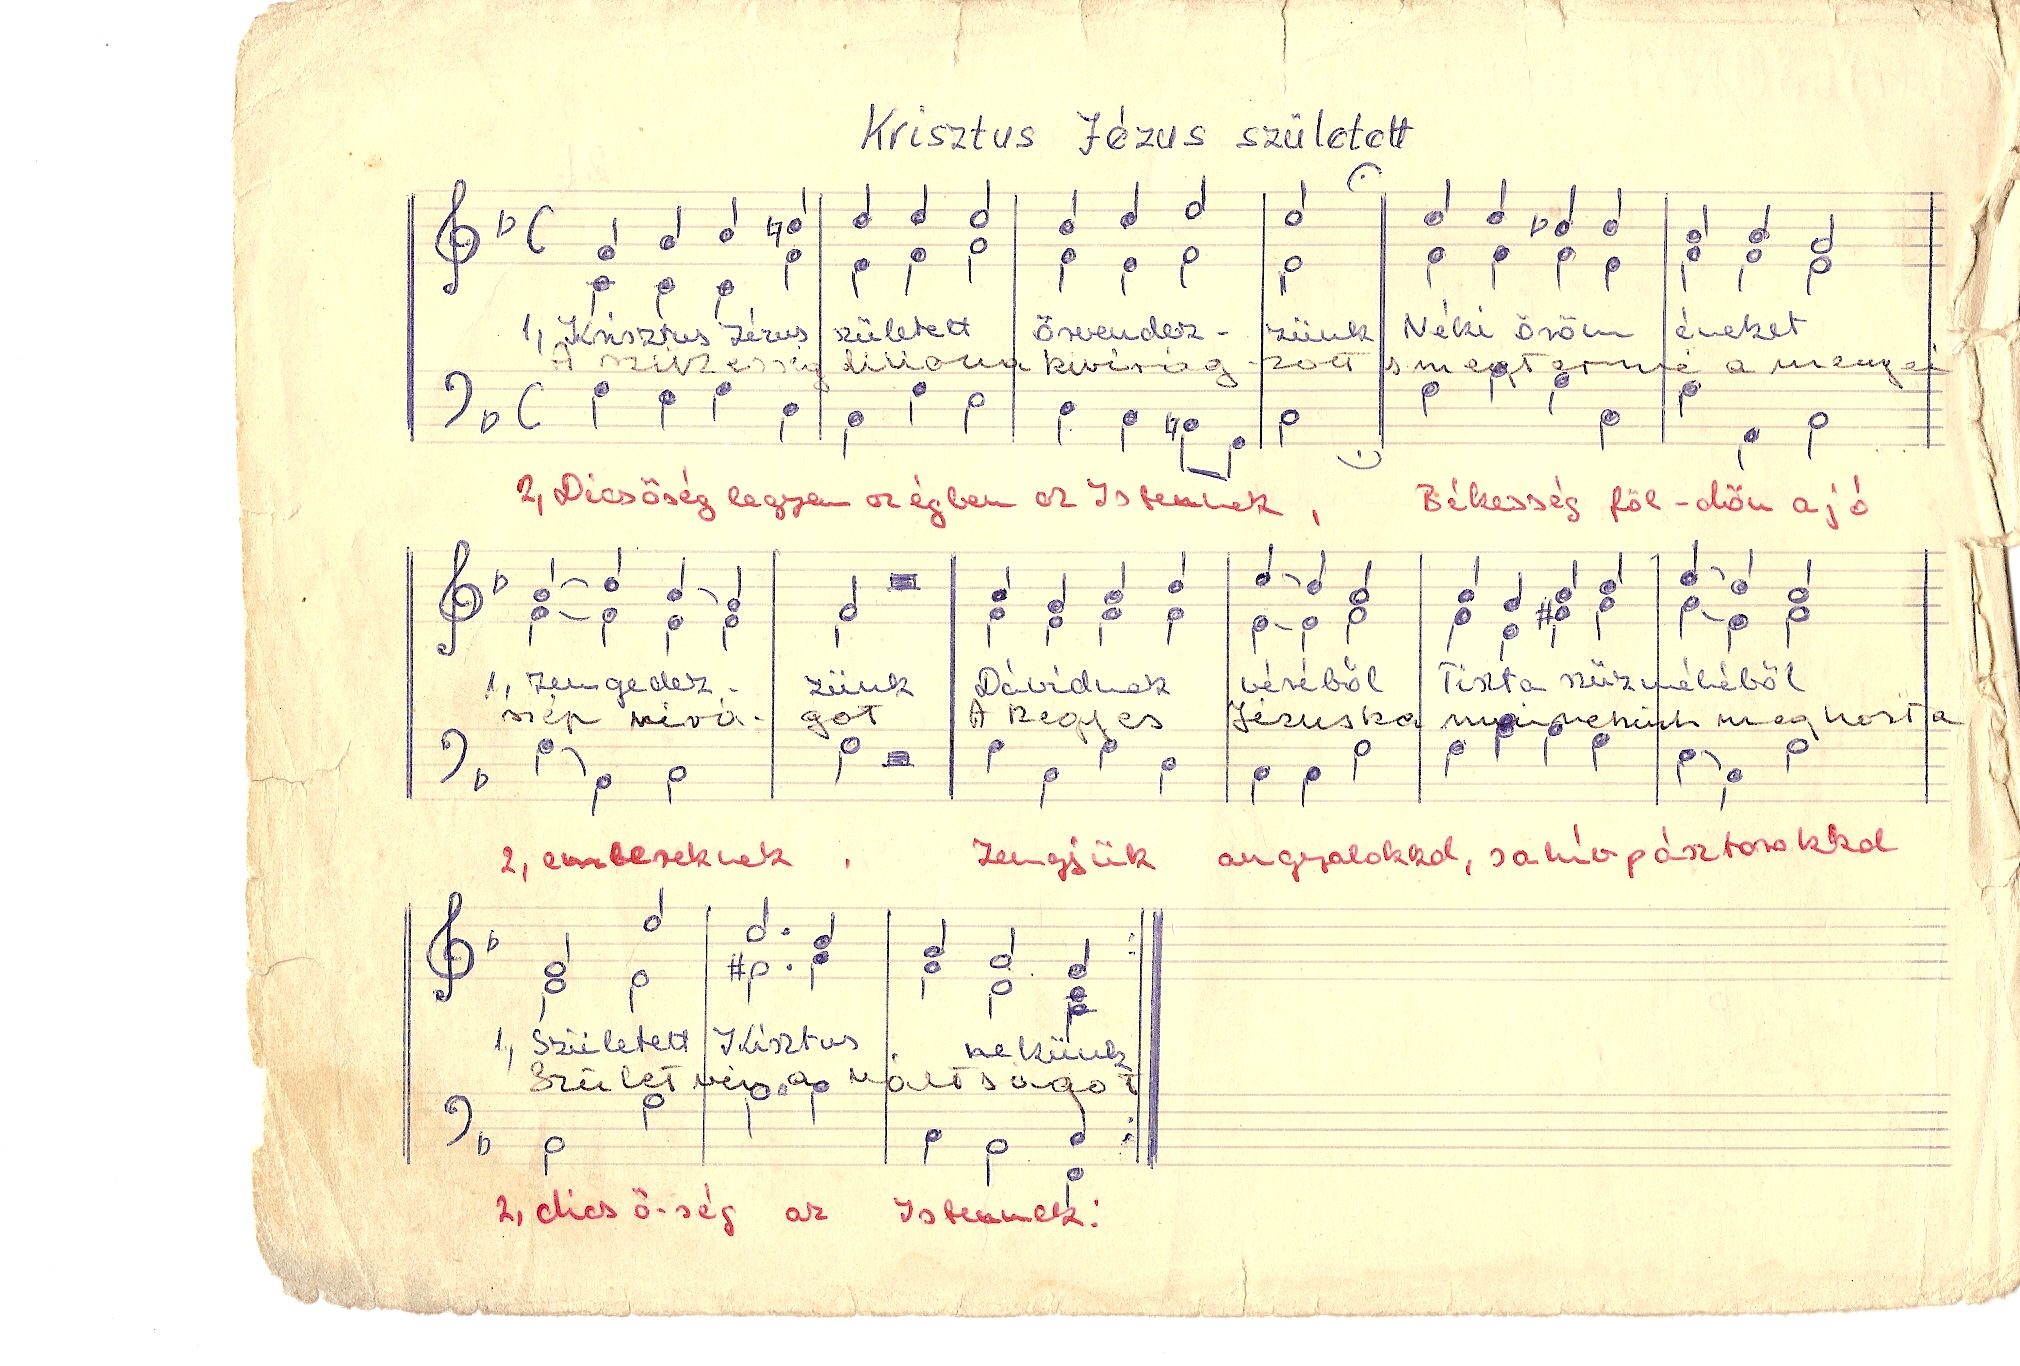 Krisztus Jézus született
1, Krisztus Jézus született örvendez- zünk Néki öröm éneket
A szüzesség lilioma kivirág-zott s megtermé a mennyei
2, Dicsőség legyen az égben az Istennek, Békesség föl-dön a jó
1, zengedez- zünk Dávidnak véréből Tiszta szűz méhéből
szép virá- got A kegyes Jézuska nekünk meghozta
2, embereknek, Zengjük angyalokkal, s a hív pásztorokkal
1, Született Krisztus nekünk
Születvén a váltságot
2, dicső-ség az Istennek: